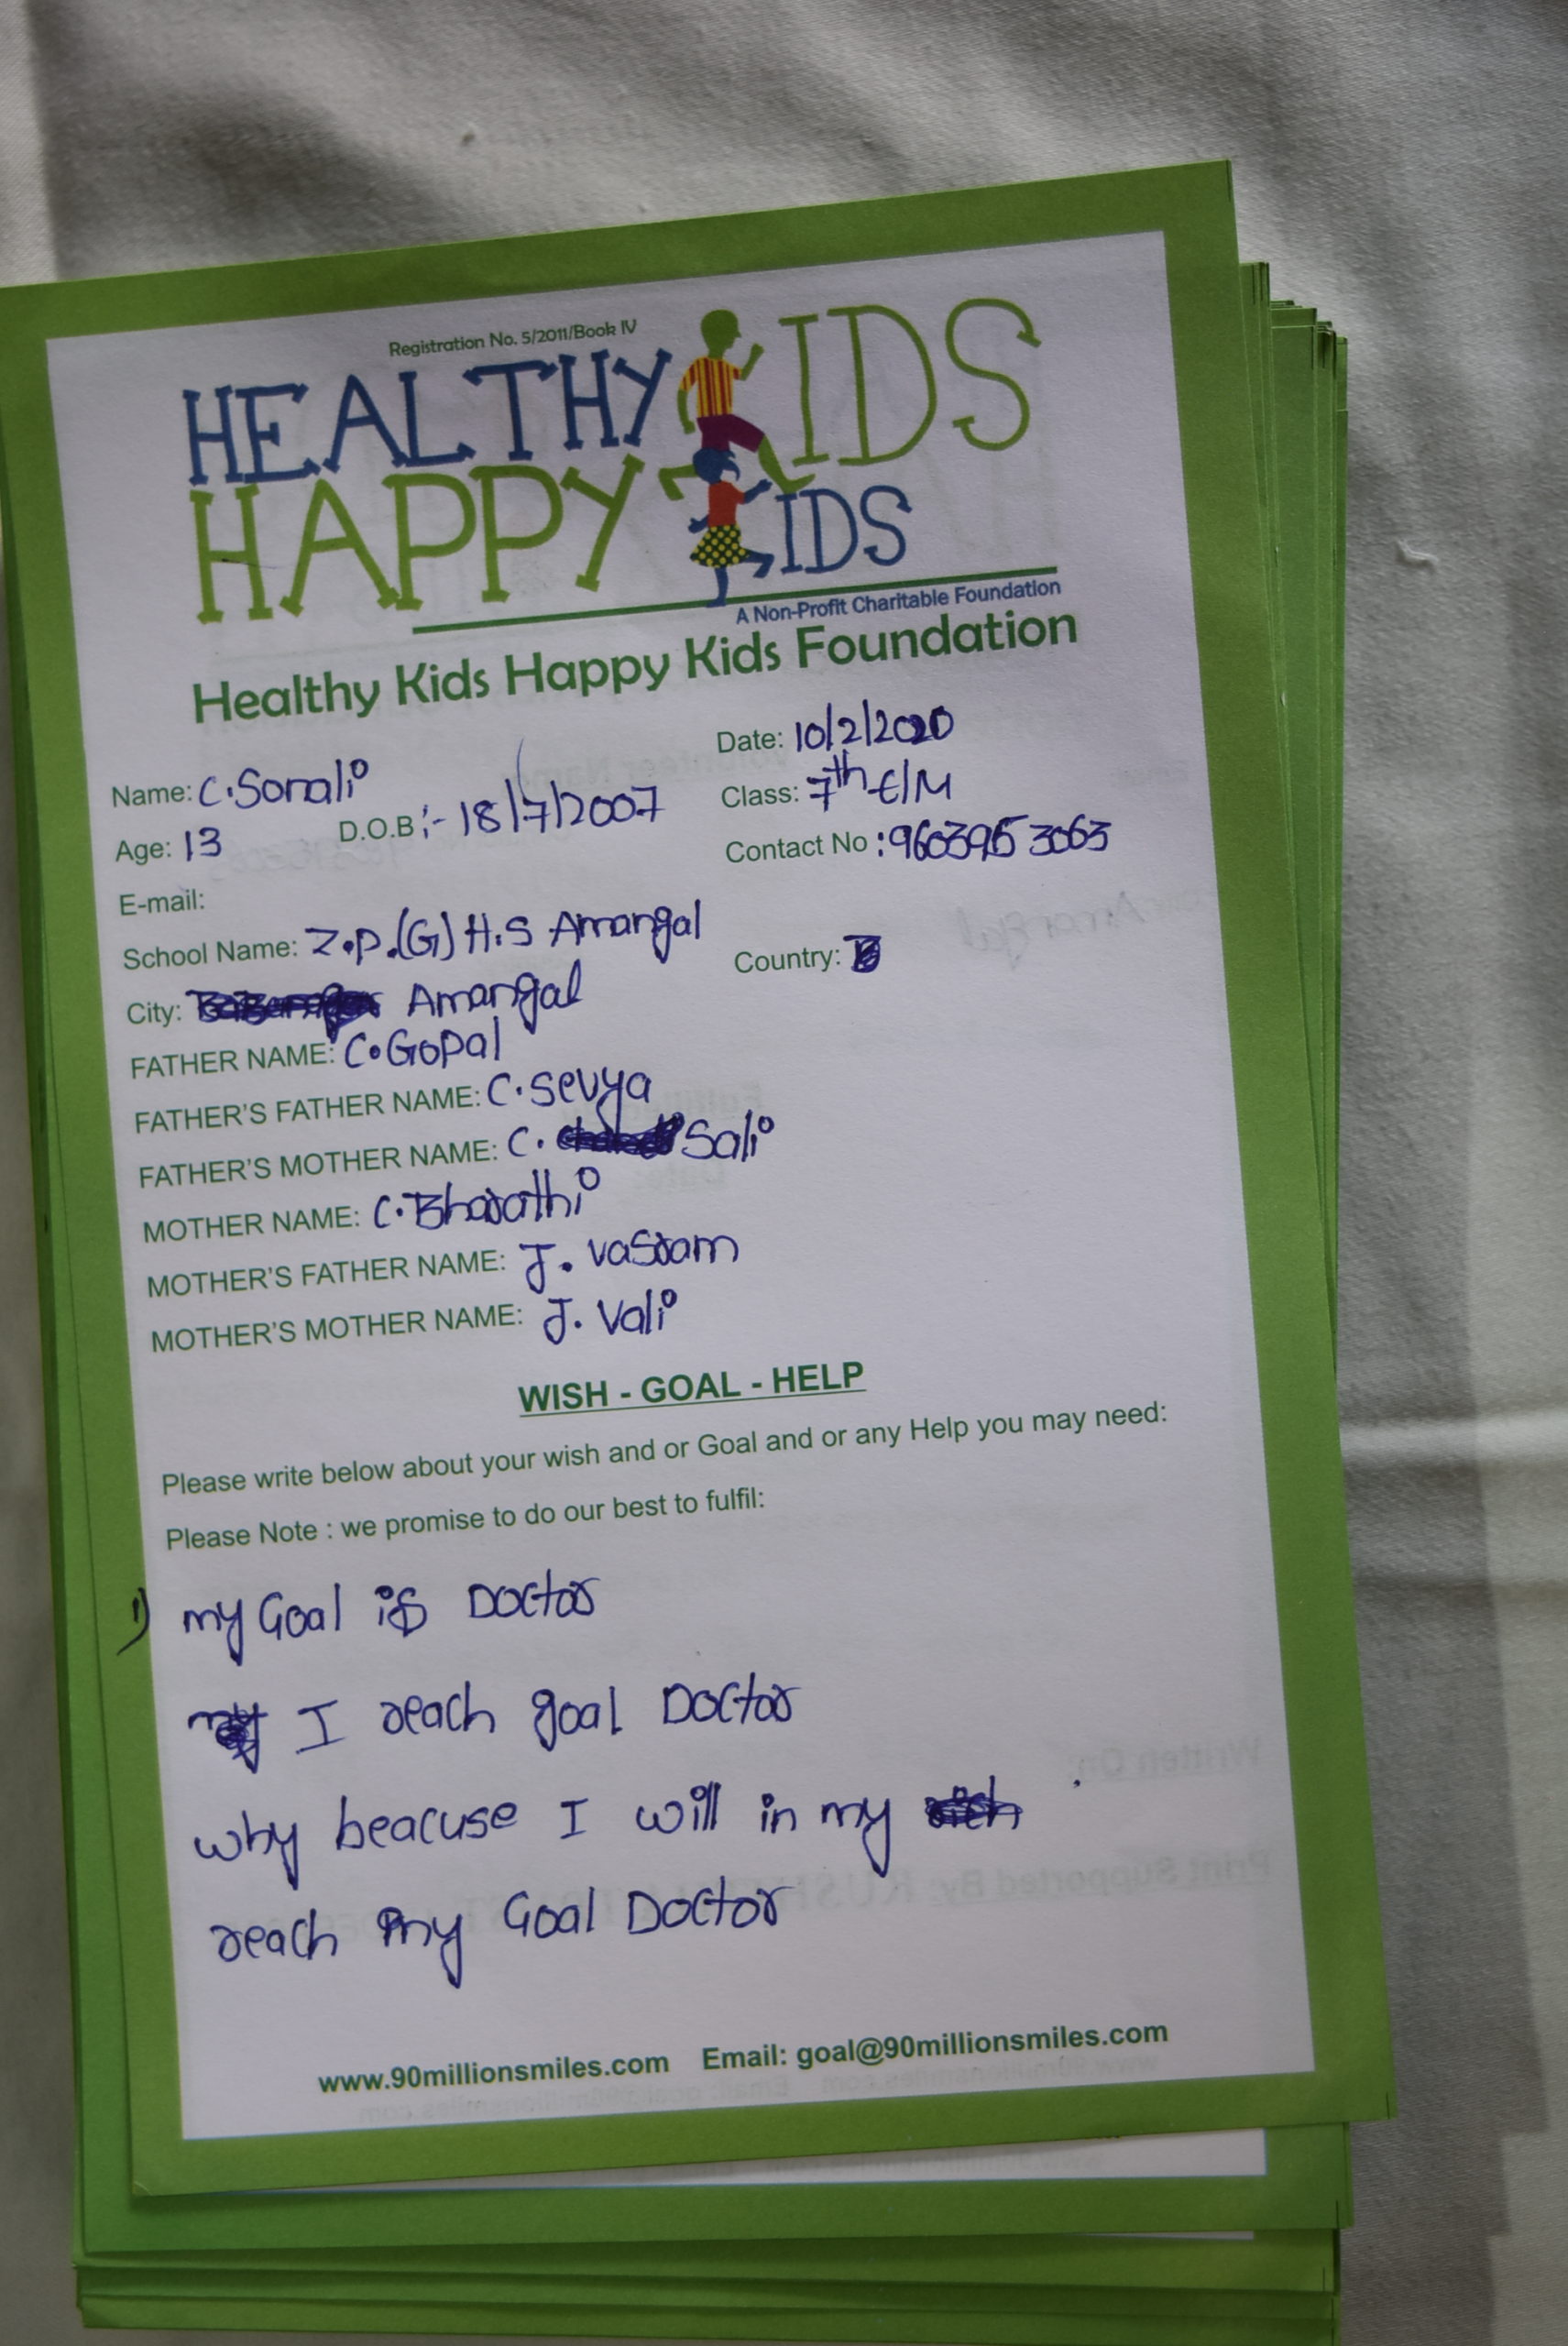 Registration No. 5/2011/Book IV
HEALTHY KIDS
HAPPY KIDS
A Non-Profit Charitable Foundation
Healthy Kids Happy Kids Foundation
Date: 10/2/2020
Name: C.Sonali
Class: 7th E/M
Age: 13 D.O.B :- 18/7/2007
Contact No :
E-mail:
School Name: Z.P.(G) H.S Amangal
Country:
City: Amangal
FATHER NAME: C.Gopal
FATHER'S FATHER NAME: C.Sevya
FATHER'S MOTHER NAME: C. Sali
MOTHER NAME: C.Bharathi
MOTHER'S FATHER NAME: J. Vasram
MOTHER'S MOTHER NAME: J. Vali
WISH - GOAL - HELP
Please write below about your wish and or Goal and or any Help you may need:
Please Note : we promise to do our best to fulfil:
1) my Goal is Doctor
I reach goal Doctor
why beacuse I will in my
reach my Goal Doctor
www.90millionsmiles.com Email: goal@90millionsmiles.com